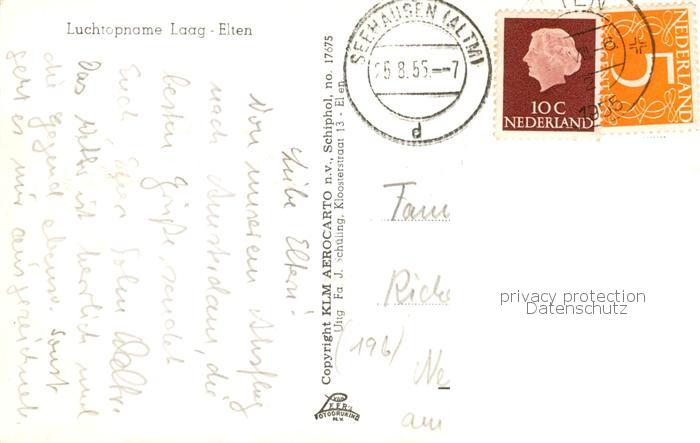 Luchtopname Laag - Elten
Liebe Eltern!
Von unserem Ausflug
nach Amsterdam, die
besten Grüße sendet
Euch Euer Sohn
Das Wetter ist herrlich und
die gegend ebenso. Sonst
geht es mir ausgezeichnet.
Copyright KLM AEROCARTO n.v., Schiphol, no. 17675
Uitg. Fa J. Schüling, Kloosterstraat 13 - Elten
VAN
LEER'S
FOTODRUKIND.
N.V.
SEEHAUSEN (ALTM)
25.8.55.-7
d
10 C
NEDERLAND
NEDERLAND
5
CENT
TEN
1955
Fam
Ricke
(196)
Ne
am
privacy protection
Datenschutz